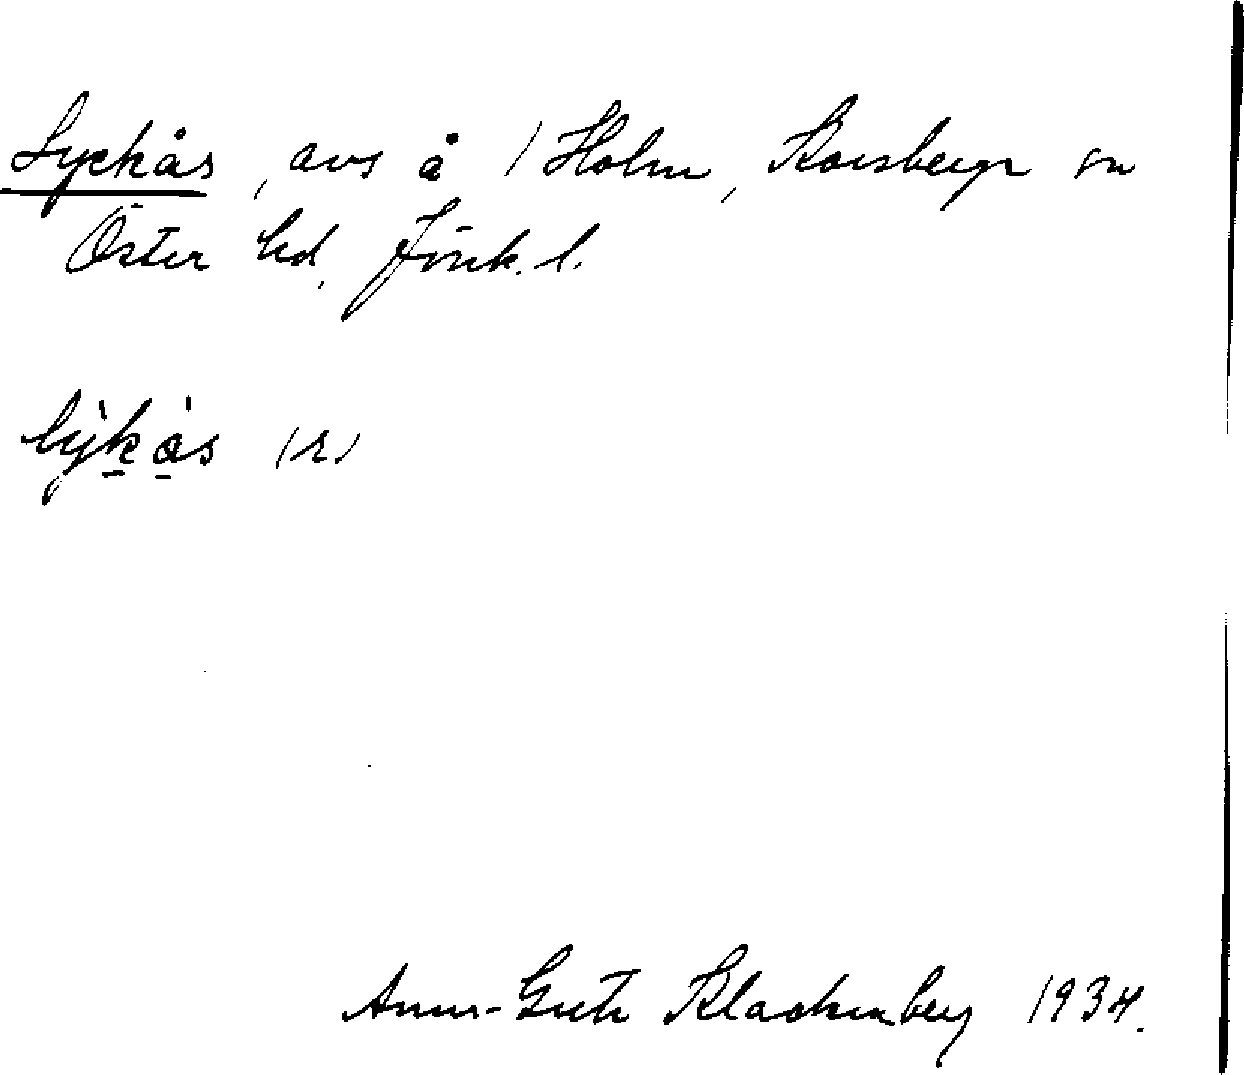 Lyckås, avs å 1 Holm, Korsberga sn
Öster hd, Jönk. l.
lỳkås (r)
Anna-Greta Klackenberg 1934.